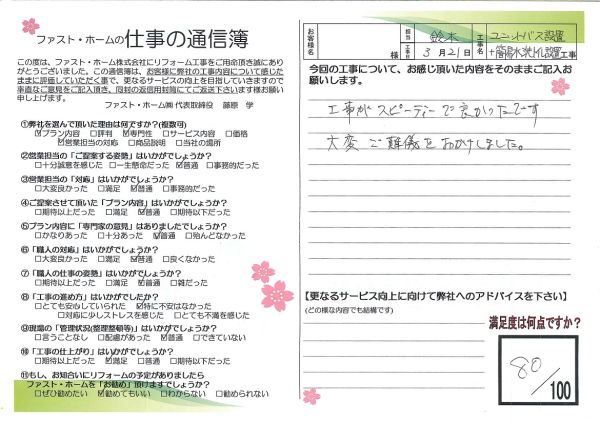 ファスト・ホームの仕事の通信簿
この度は、ファスト・ホーム株式会社にリフォーム工事をご用命頂き誠にあり
がとうございました。この通信簿は、お客様に弊社の工事内容について感じた
ままに評価していただく事で、更なるサービスの向上を目指していきますので
率直なご意見をご記入頂き、同封の返信用封筒にてご返送下さいます様お願い
申し上げます。
ファスト・ホーム㈱ 代表取締役 藤原 学
①弊社を選んで頂いた理由は何ですか?(複数可)
☑プラン内容 □評判 ☑専門性 □サービス内容 □価格
☑営業担当の対応 □商品説明 □当社の場所
②営業担当の「ご提案する姿勢」はいかがでしょうか?
□十分誠意を感じた □一生懸命だった ☑普通 □事務的だった
③営業担当の「対応」はいかがでしょうか?
□大変良かった □満足 ☑普通 □事務的だった
④ご提案させて頂いた「プラン内容」はいかがでしょうか?
□期待以上だった □満足 ☑普通 □期待以下だった
⑤プラン内容に「専門家の意見」はありましたでしょうか?
□かなりあった □十分あった ☑普通 □殆んどなかった
⑥「職人の対応」はいかがでしょうか?
□大変良かった □満足 ☑普通 □良くなかった
⑦「職人の仕事の姿勢」はいかがでしょうか?
□期待以上だった □満足 ☑普通 □雑だった
⑧「工事の進め方」はいかがでしたか?
□とても安心していられた ☑特に不安はなかった
□対応に少しストレスを感じた □とても不満を感じた
⑨現場の「管理状況(整理整頓等)」はいかがでしたでしょうか?
□言うことなし □配慮があった ☑普通 □できていない
⑩「工事の仕上がり」はいかがでしょうか?
□期待以上だった ☑満足 □普通 □期待以下だった
⑪もし、お知合いにリフォームの予定がありましたら
ファスト・ホームを「お勧め」頂けますでしょうか?
□ぜひ勧めたい ☑勧めてもいい □わからない □勧められない
お客様名 様
担当 鈴木
工事日 3月21日
工事名 ユニットバス設置
+簡易水洗トイレ設置工事
今回の工事について、お感じ頂いた内容をそのままご記入お
願いします。
工事が スピーディーで良かったです
大変ご難儀をおかけしました。
【更なるサービス向上に向けて弊社へのアドバイスを下さい】
(どの様な内容でも結構です)
満足度は何点ですか?
80/100